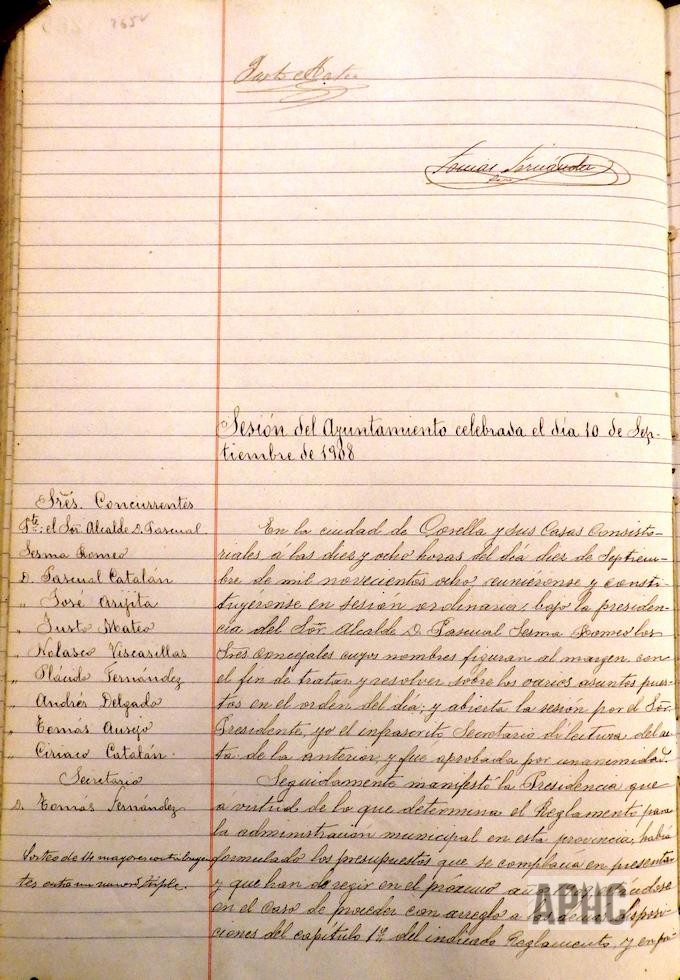 265v
Justo Mateo
Tomás Fernández
Sesión del Ayuntamiento celebrada el día 10 de Sep-
tiembre de 1908
Srēs. Concurrentes
Pte: el Sor Alcalde D. Pascual
Sesma Romeo
D. Pascual Catalán
„ José Arijita
„ Justo Mateo
„ Nolasco Viscasillas
„ Plácido Fernández
„ Andrés Delgado
„ Tomás Ausejo
„ Ciriaco Catalán.
Secretario
D. Tomás Fernández
Sorteo de 14 mayores contribuyen
tes entre un número triple.
En la ciudad de Corella y sus Casas Consisto-
riales á las diez y ocho horas del día diez de Septiem-
bre de mil novecientos ocho reuniéronse y consti-
tuyéronse en sesión ordinaria, bajo la presiden-
cia del Sor Alcalde D. Pascual Sesma Romeo los
Srēs Concejales cuyos nombres figuran al margen con
el fin de tratar y resolver sobre los varios asuntos pues-
tos en el orden del día; y abierta la sesión por el Sor
Presidente, yo el infrascrito Secretario di lectura del ac-
ta de la anterior, y fué aprobada por unanimidad.
Seguidamente manifestó la Presidencia que
á virtud de lo que determina el Reglamento para
la administración municipal en esta provincia, había
formulado los presupuestos que se complacía en presentar
y que han de regir en el próximo
en el caso de proceder con arreglo a las demás disposi-
ciones del capítulo 1º del indicado Reglamento, y en pri
APHC